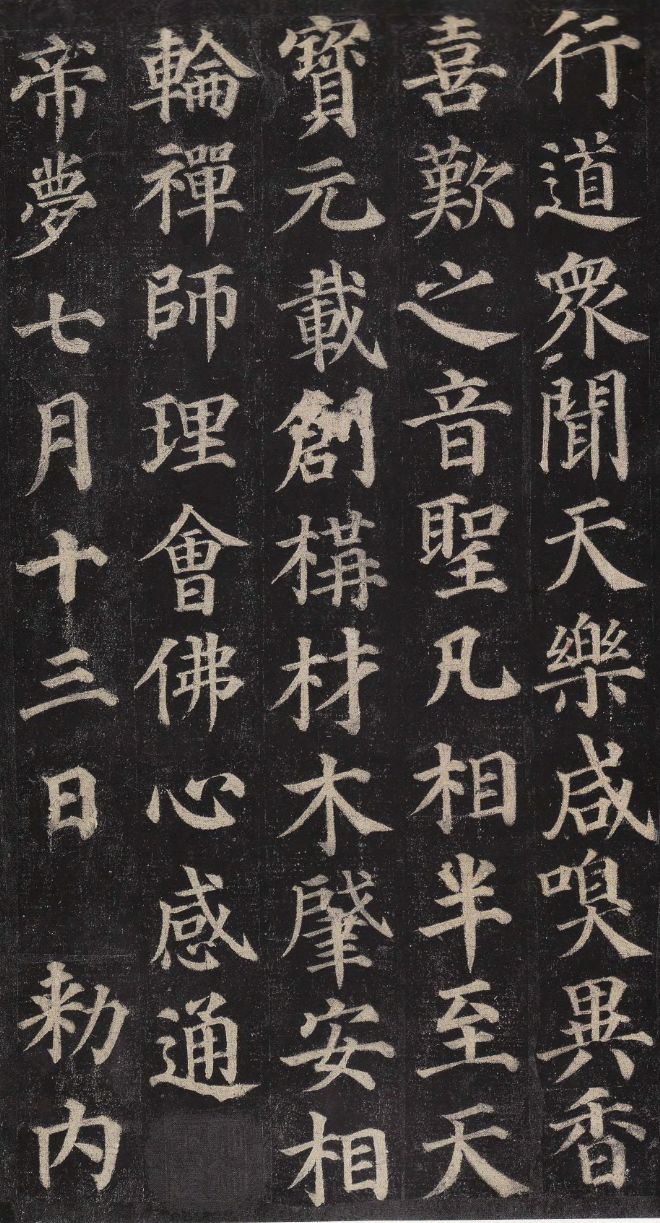 行道衆聞天樂咸嗅異香
喜歎之音聖凡相半至天
寶元載創構材木肈安相
輪禪師理會佛心感通
帝夢七月十三日 勑内